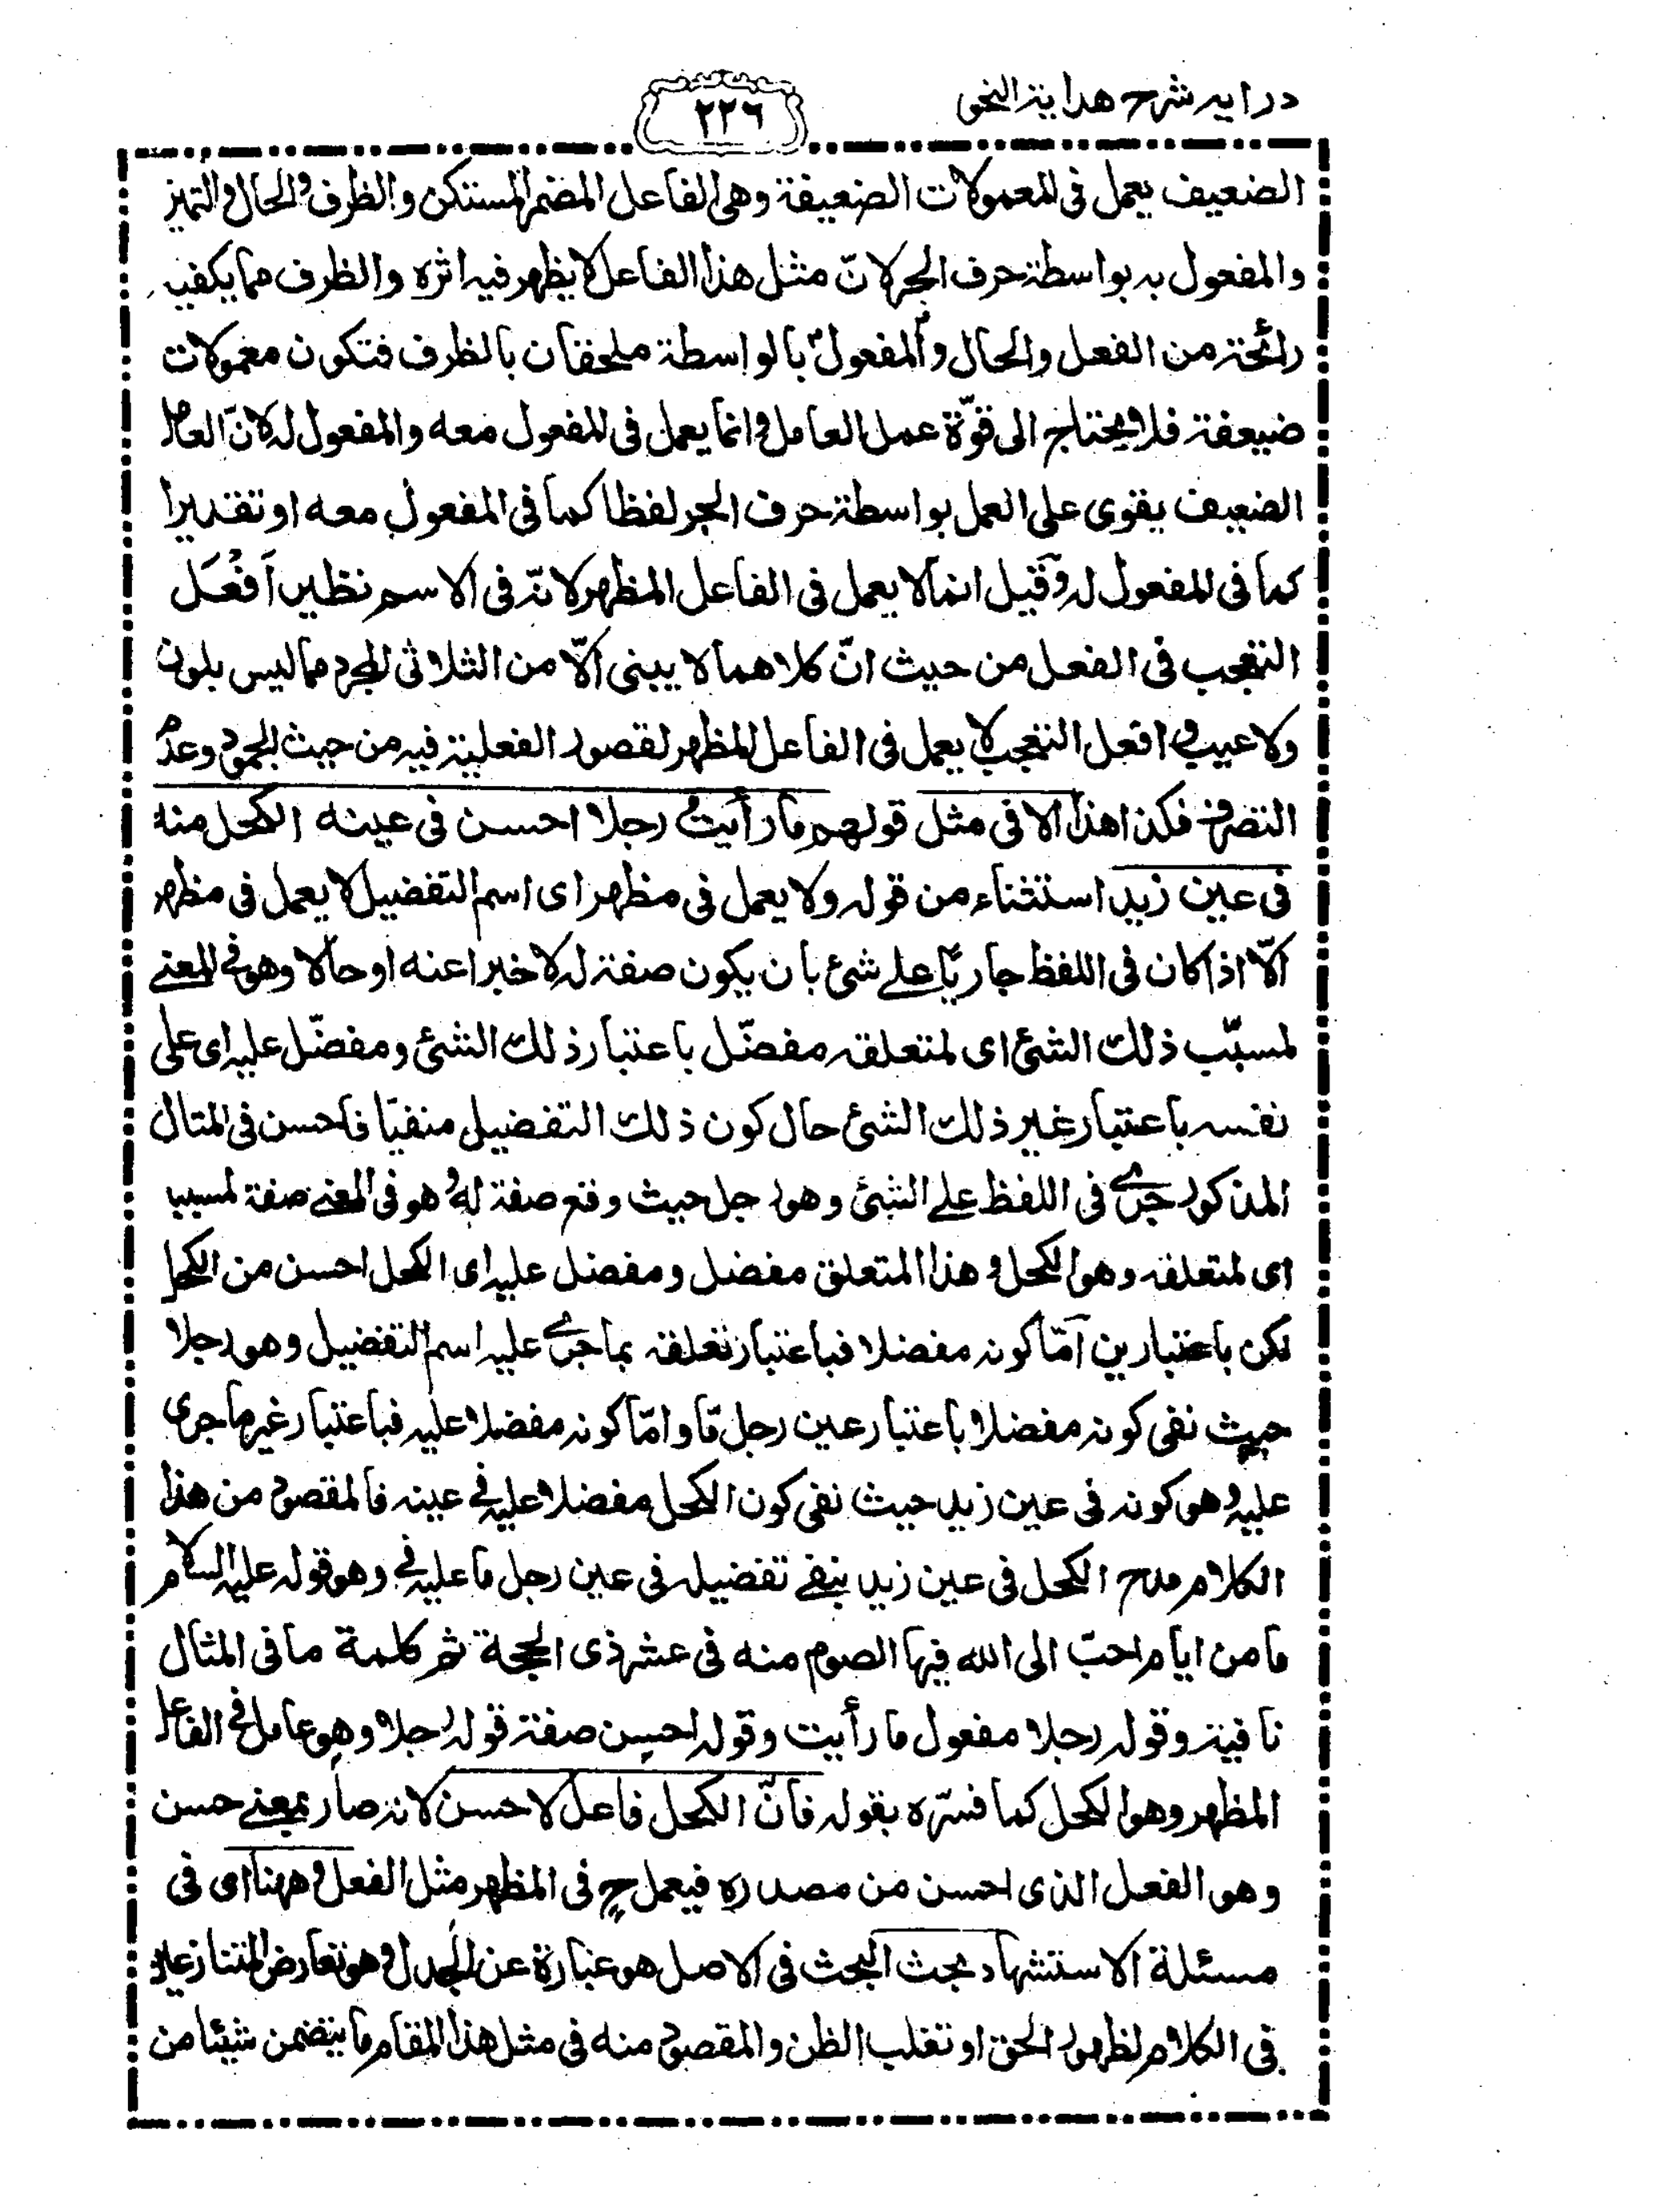 درايه شرح هداية النحو
٢٢٦
الضعيف يعمل فى المعمولات الضعيفة وهى الفاعل المضمر المستكن والظرف والحال والتميز
والمفعول به بواسطة حرف الجر لانّ مثل هذا الفاعل لا يظهر فيه اثره والظرف مما يكفيه
رائحة من الفعل والحال والمفعول بالواسطة ملحقان بالظرف فتكون معمولات
ضعيفة فلا يحتاج الى قوّة عمل العامل وانما يعمل فى المفعول معه والمفعول له لانّ العامل
الضعيف يقوى على العمل بواسطة حرف الجر لفظا كما فى المفعول معه او تقديرا
كما فى المفعول له وقيل انما لا يعمل فى الفاعل المظهر لانه فى الاسم نظير اَفْعَل
التعجب فى الفعل من حيث انّ كلاهما لا يبنى الّا من الثلاثى المجرد مما ليس بلون
ولا عيب و افعل التعجب لا يعمل فى الفاعل المظهر لقصور الفعلية فيه من حيث الجمود وعدم
التصرف فكذا هذا الا فى مثل قولهم ما رأيتُ رجلا احسن فى عينه الكحل منه
فى عين زيد استثناء من قوله ولا يعمل فى مظهر اى اسم التفضيل لا يعمل فى مظهر
الّا اذا كان فى اللفظ جاريًا على شئ بان يكون صفة له لا خبرا عنه او حالا وهو فى المعنے
لمسبّب ذلك الشئ اى لمتعلقه مفضّل باعتبار ذلك الشئ ومفضّل عليه اى على
نفسه باعتبار غير ذلك الشئ حال كون ذلك التفضيل منفيًا فاحسن فى المثال
المذكور جرے فى اللفظ على الشئ وهو رجل حيث وقع صفة له و هو فى المعنے صفة لمسببا
اى لمتعلقه وهو الكحل و هذا المتعلق مفضل ومفضل عليه اى الكحل احسن من الكحل
لكن باعتبارين اَمّا كونه مفضلا فباعتبار تعلقه بما جرے عليه اسم التفضيل وهو رجلا
حيث نفى كونه مفضلا باعتبار عين رجل مّا و امّا كونه مفضلا عليه فباعتبار غير ما جرى
عليه و هو كونه فى عين زيد حيث نفى كون الكحل مفضلا عليه فے عينه فالمقصود من هذا
الكلام مدح الكحل فى عين زيد بنفے تفضيله فى عين رجل ما عليه فے وهو قوله عليه السلام
ما من ايام احبّ الى الله فيها الصوم منه فى عشر ذى الحجة ثم كلمة ما فى المثال
نافية وقوله رجلا مفعول ما رأيت وقوله احسن صفة قوله رجلا وهو عامل فے الفاعل
المظهر وهو الكحل كما فسّره بقوله فانّ الكحل فاعل لاحسن لانه صار بمعنے حسن
وهو الفعل الذى احسن من مصدره فيعمل ح فى المظهر مثل الفعل و ههنا اى فى
مسئلة الاستشهاد بحث البحث فى الاصل هو عبارة عن الجدل و هو تعارض المتنازعين
فى الكلام لظهور الحق او تغلب الظن والمقصود منه فى مثل هذا المقام ما يتضمن شيئا من